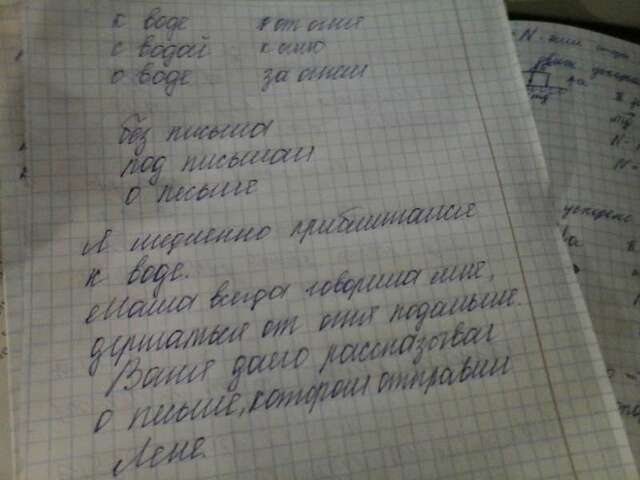 к воде от огня
с водой к огню
о воде за огнём
без письма
под письмом
о письме
Я медленно приближался
к воде.
Мама всегда говорила мне,
держаться от огня подальше.
Ваня долго рассказывал
о письме, которое отправил
Лене.